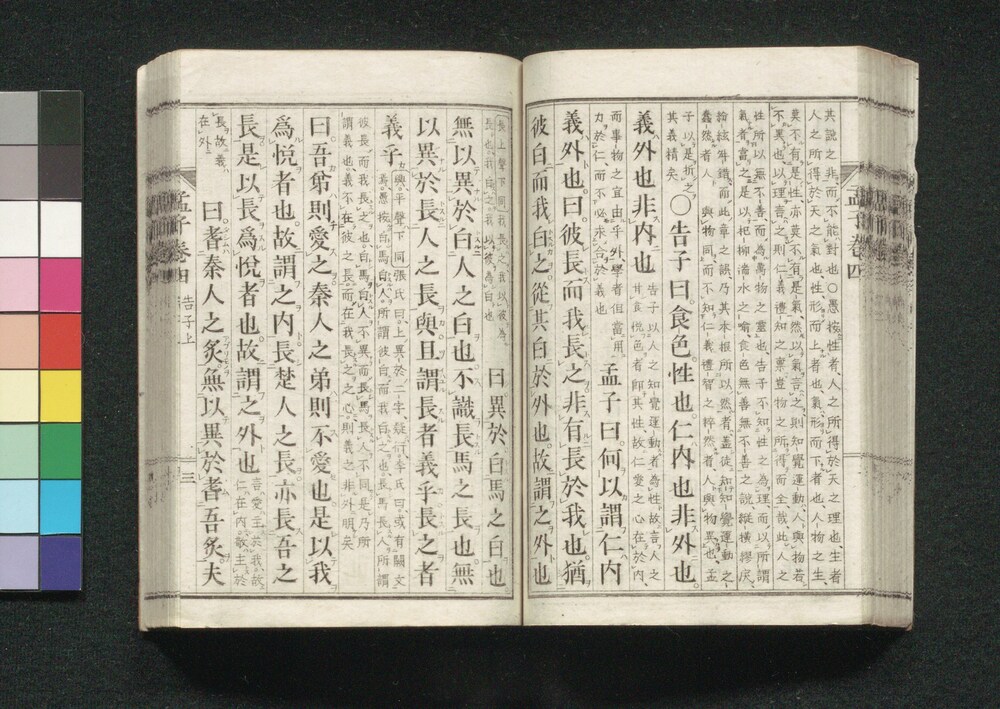 其說之非而不能對也○愚按性者人之所得於天之理也生者
人之所得於天之氣也性形而上者也氣形而下者也人物之生
莫不有是性亦莫不有是氣然以氣言之則知覺運動人與物若
不異也以理言之則仁義禮知之稟豈物之所得而全哉此人之
性所以無不善而為萬物之靈也告子不知性之為理而以所謂
氣者當之是以杞柳湍水之喻食色無善無不善之說縱橫繆戾
紛紜舛錯而此章之誤乃其本根所以然者蓋徒知知覺運動之
蠢然者人與物同而不知仁義禮智之粹然者人與物異也孟
子以是折之
其義精矣
○告子曰食色性也仁內也非外也
義外也非內也
告子以人之知覺運動者為性故言人之
甘食悅色者即其性故仁愛之心在於內
而事物之宜由乎外學者但當用
力於仁而不必求合於義也
孟子曰何以謂仁內
義外也曰彼長而我長之非有長於我也猶
彼白而我白之從其白於外也故謂之外也
孟子卷四
長上聲下同我長之我以彼為
長也我白之我以彼為白也
曰異於白馬之白也
無以異於白人之白也不識長馬之長也無
以異於長人之長與且謂長者義乎長之者
義乎
與平聲下同張氏曰上異於二字疑衍李氏曰或有闕文
焉愚按白馬白人所謂彼白而我白之也長馬長人所謂
彼長而我長之也白馬白人不異而長馬長人不同是乃所
謂義也義不在彼之長而在我長之之心則義之非外明矣
曰吾弟則愛之秦人之弟則不愛也是以我
為悅者也故謂之內長楚人之長亦長吾之
長是以長為悅者也故謂之外也
言愛主於我故
仁在內敬主於
長故義
在外
曰耆秦人之炙無以異於耆吾炙夫
孟子卷四
告子上
三